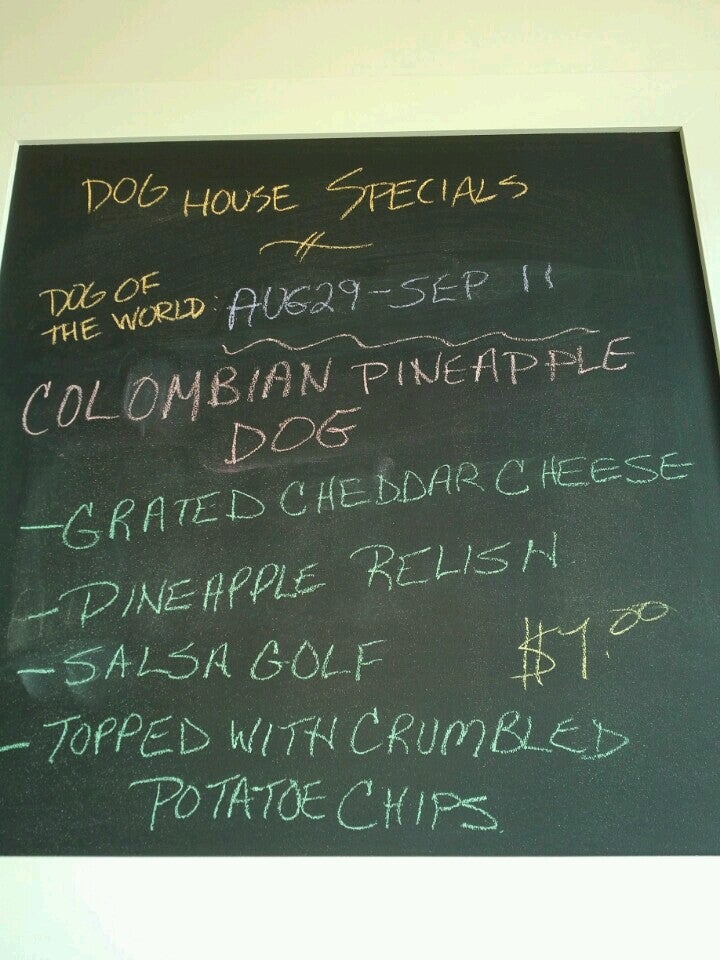 DOG HOUSE SPECIALS
DOG OF
THE WORLD: AUG29-SEP 11
COLOMBIAN PINEAPPLE
DOG
-GRATED CHEDDAR CHEESE
-PINEAPPLE RELISH
-SALSA GOLF $7.00
-TOPPED WITH CRUMBLED
POTATOE CHIPS